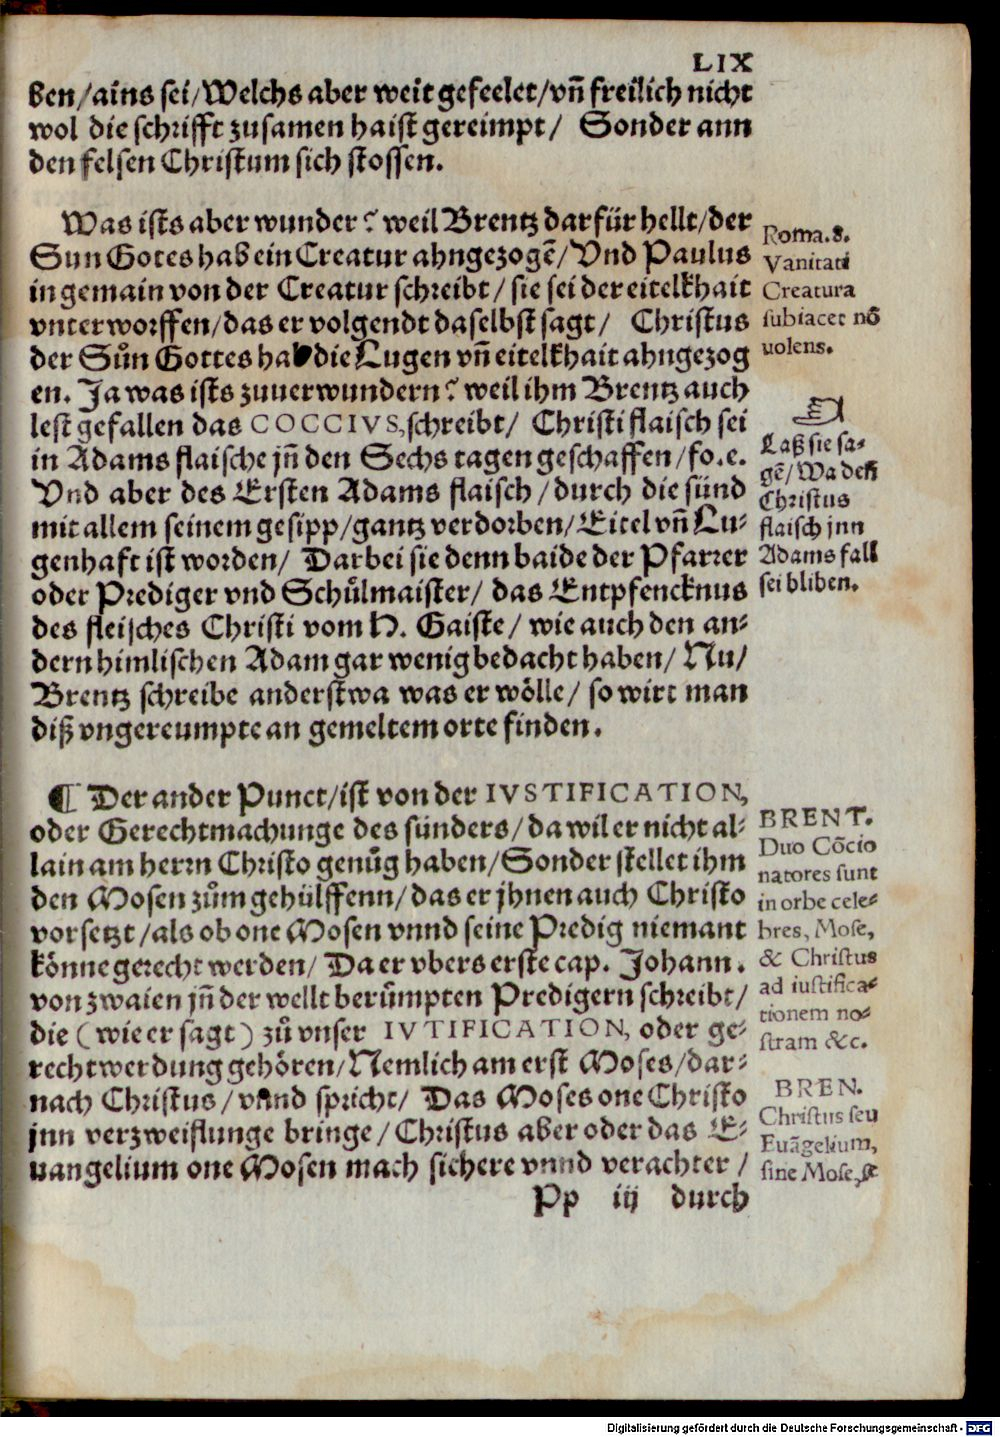 LIX
ben/ains sei/Welchs aber weit gefeelet/vñ freilich nicht
wol die schrifft zusamen haist gereimpt/ Sonder ann
den felsen Christum sich stossen.
Was ists aber wunder? weil Brentz darfür hellt/der
Sun Gotes hab ein Creatur ahngezogẽ/Vnd Paulus
in gemain von der Creatur schreibt/sie sei der eitelkhait
vnterworffen/das er volgendt daselbst sagt/ Christus
der Sůn Gottes hab die Lugen vñ eitelkhait ahngezog
en. Ja was ists zuuerwundern? weil ihm Brentz auch
lest gefallen das COCCIVS,schreibt/ Christi flaisch sei
in Adams flaische jñ den Sechs tagen geschaffen/fo.e.
Vnd aber des Ersten Adams flaisch/durch die sünd
mit allem seinem gesipp/gantz verdorben/Eitel vñ Lu-
genhaft ist worden/ Darbei sie denn baide der Pfarrer
oder Prediger vnd Schůlmaister/ das Entpfencknus
des fleisches Christi vom H. Gaiste/ wie auch den an-
dern himlischen Adam gar wenig bedacht haben/ Nu/
Brentz schreibe anderstwa was er wölle/ so wirt man
diß vngereumpte an gemeltem orte finden.
Roma.8.
Vanitati
Creatura
subiacet nõ
uolens.
☞
Laß sie sa-
gẽ/Wa deñ
Christus
flaisch jnn
Adams fall
sei bliben.
¶ Der ander Punct/ist von der IVSTIFICATION,
oder Gerechtmachunge des sünders/da wil er nicht al-
lain am herrn Christo genůg haben/Sonder stellet ihm
den Mosen zům gehülffenn/das er jhnen auch Christo
vorsetzt/als ob one Mosen vnnd seine Predig niemant
könne gerecht werden/ Da er vbers erste cap. Johann.
von zwaien jñ der wellt berůmpten Predigern schreibt/
die (wie er sagt) zů vnser IVTIFICATION, oder ge-
rechtwerdung gehören/Nemlich am erst Moses/dar-
nach Christus/vnnd spricht/ Das Moses one Christo
jnn verzweiflunge bringe/Christus aber oder das E-
uangelium one Mosen mach sichere vnnd verachter/
BRENT.
Duo Cõcio
natores sunt
in orbe cele-
bres, Mose,
& Christus
ad iustifica-
tionem no-
stram &c.
BREN.
Christus seu
Euãgelium,
sine Mose,&
Pp iij durch
Digitalisierung gefördert durch die Deutsche Forschungsgemeinschaft - DFG